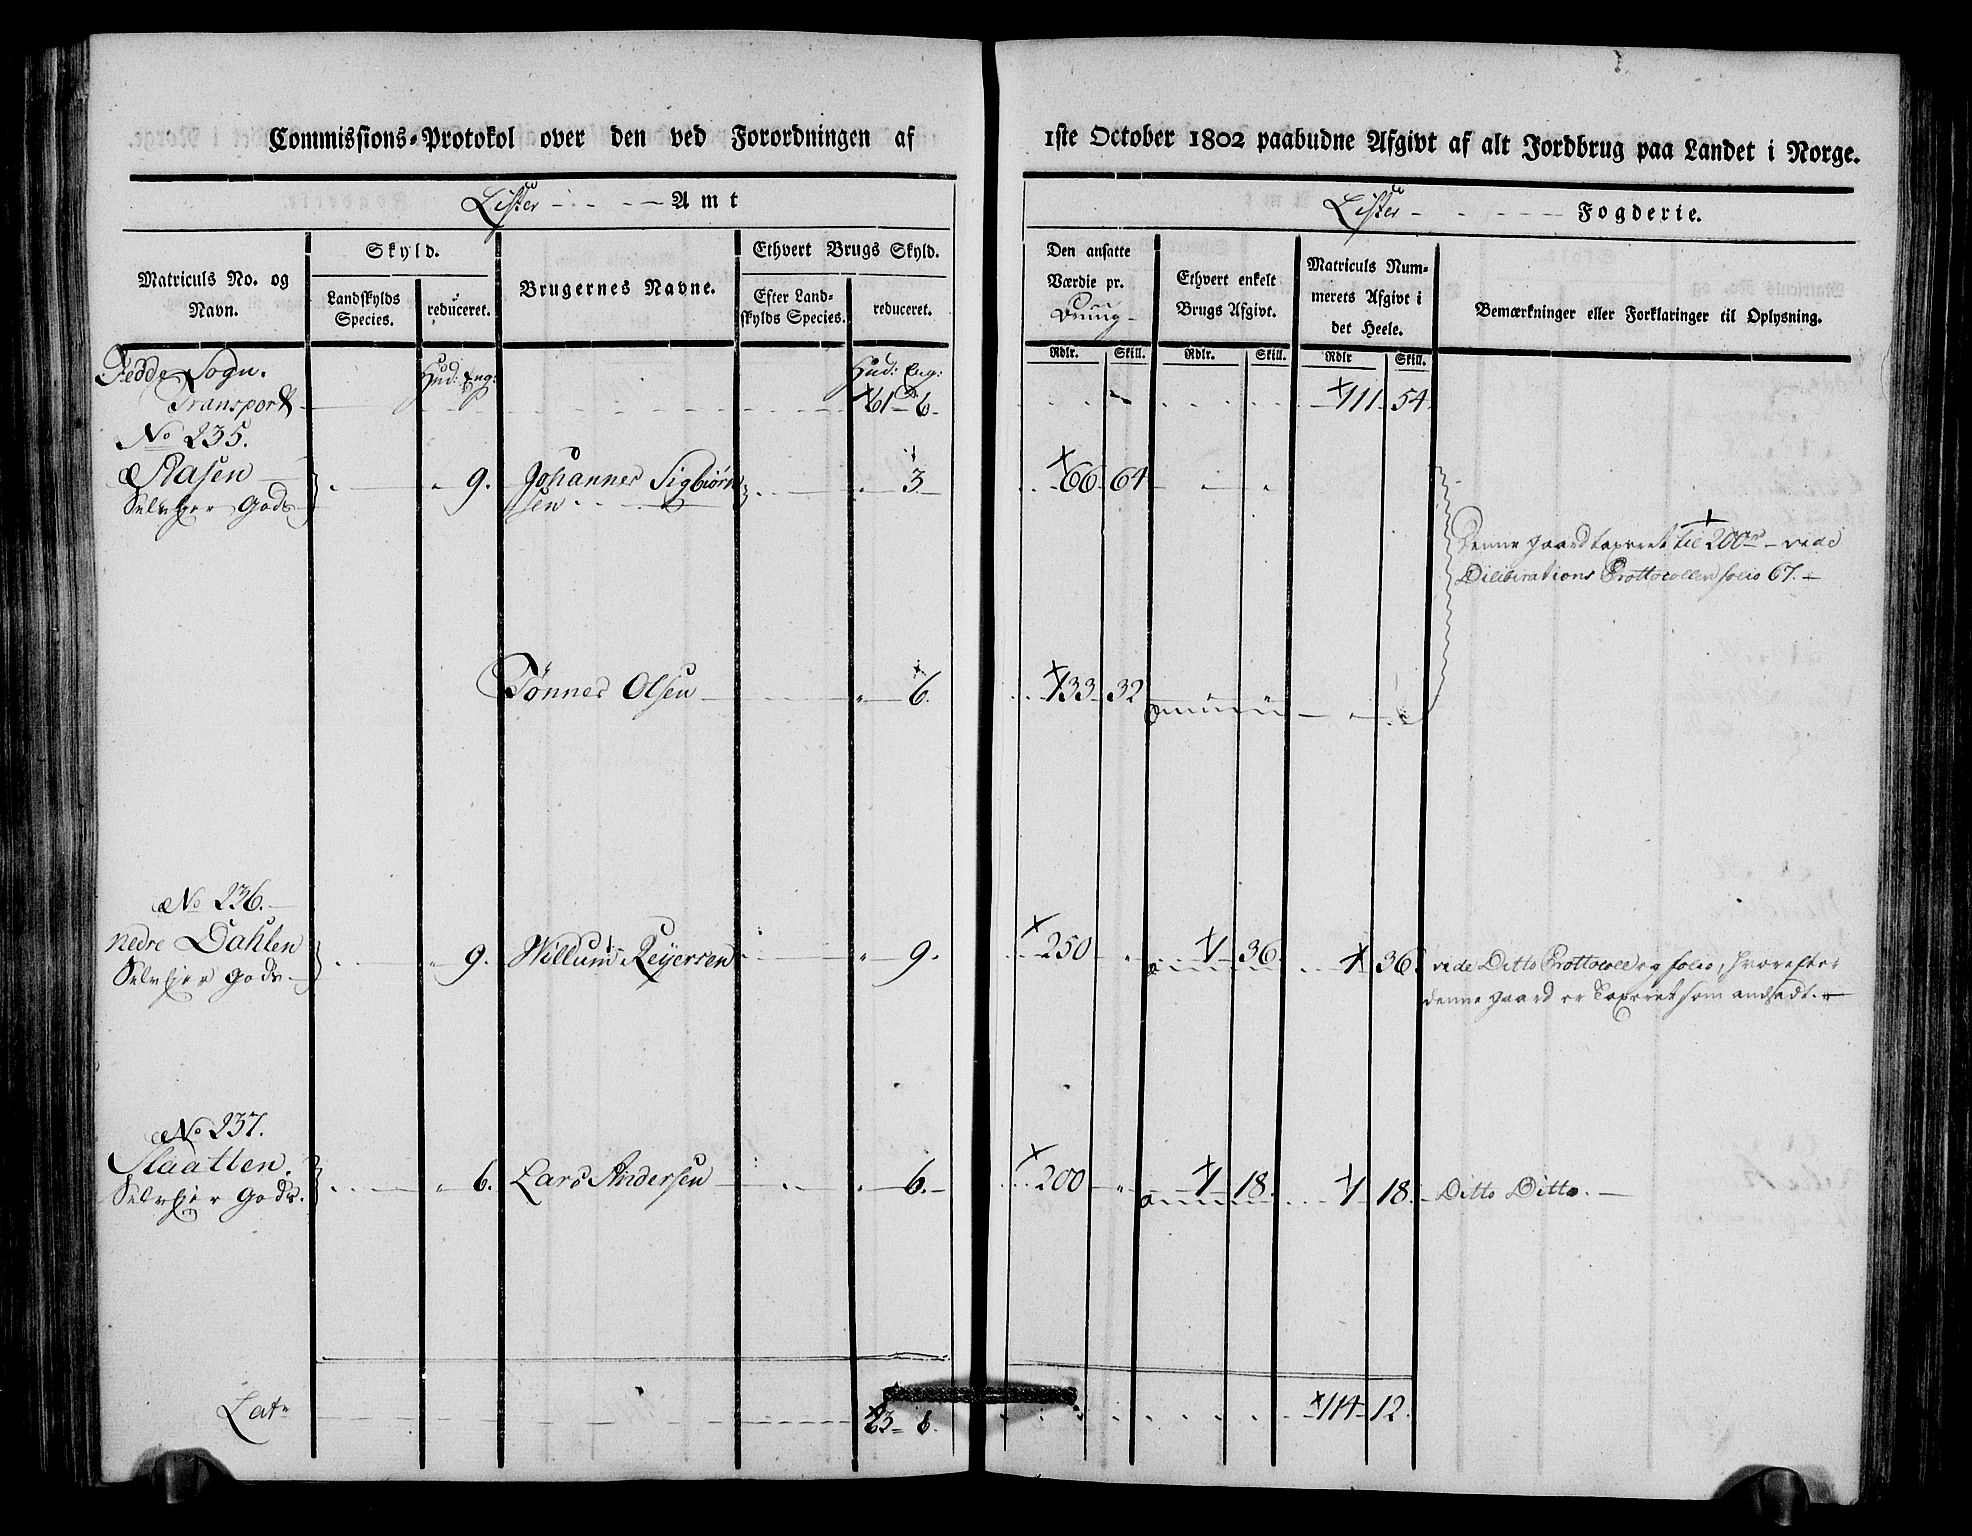 Commissions-Protokol over den ved Forordningen af
Lister Amt
Matriculs No. og Navn.
Skyld.
Landskylds Species.
reduceret.
Brugernes Navne.
Ethvert Brugs Skyld.
Efter Landskylds Species.
reduceret.
Fedde Sogn. Hud: Eng: Hud: Eng:
Transport 61 6.
No 235.
Aasen 9. Johannes Sigbiørn 3
Selveier Gods sen
Tønnes Olsen 6.
No 236.
nedre Dahlen 9. Willum Reyersen 9.
Selveier gods
No 237.
Slaatten. 6. Lars Andersen 6.
Selveier Gods.
Lat. 63 8.
1ste October 1802 paabudne Afgivt af alt Jordbrug paa Landet i Norge.
Lister Fogderie.
Den ansatte Værdie pr.
Ethvert enkelt Brugs Afgivt.
Matriculs Nummerets Afgivt i det Heele.
Bemærkninger eller Forklaringer til Oplysning.
Rdlr. Skill. Rdlr. Skill. Rdlr Skill.
111 54.
66 64
Denne gaard taxeret til 200 rd vide
Diliberations Prottocollen folio 67.
133 32
250 1 36 1 36. vide Ditto Prottocoll og folio, hvorefter
denne gaard er Taxeret som andsadt.
200 1 18. 1 18. Ditto Ditto.
114 12.